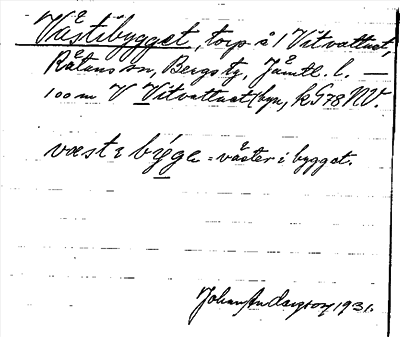 Västibygget, torp å 1 Vitvattnet,
Rätans sn, Bergs tg, Jämtl. l. —
100 m V Vitvattnet (byn, k G 78 NV.
væst i býge = väster i bygget.
Johan Anderson 1931.